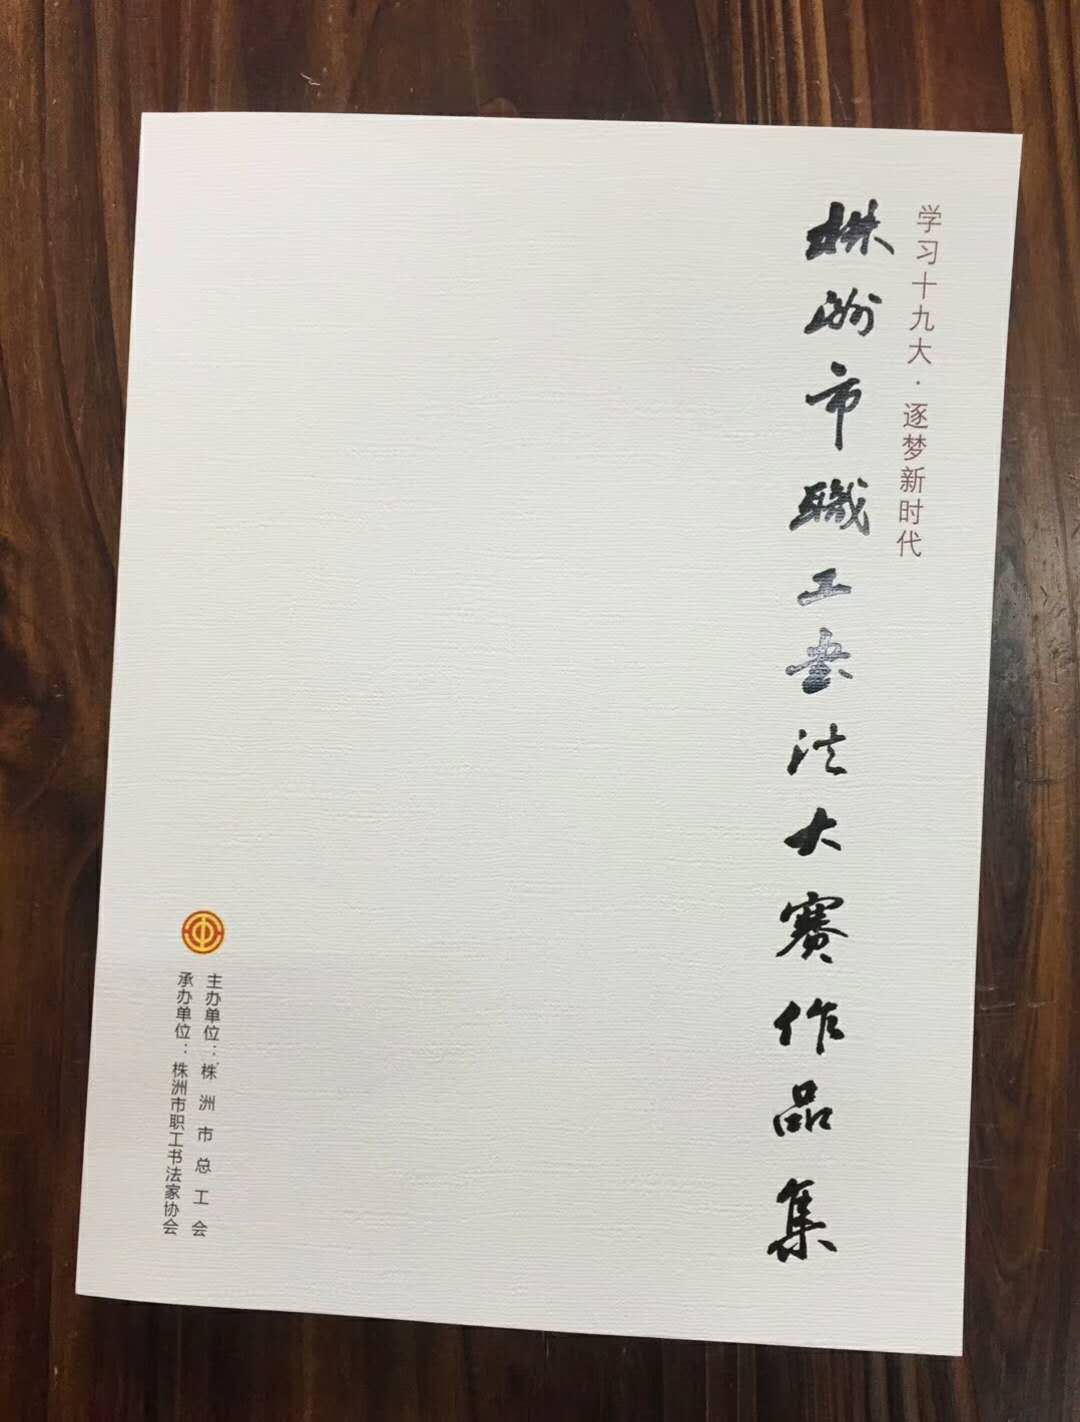 学习十九大·逐梦新时代
株洲市職工书法大赛作品集
主办单位：株洲市总工会
承办单位：株洲市职工书法家协会